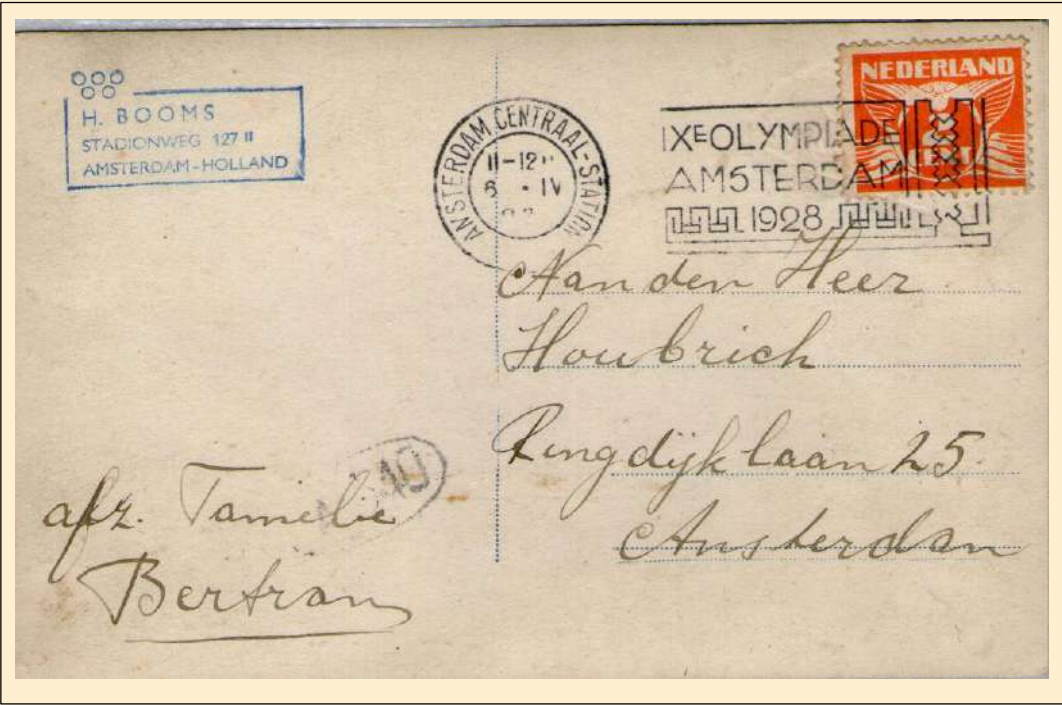 H. BOOMS
STADIONWEG 127 II
AMSTERDAM-HOLLAND
AMSTERDAM CENTRAAL-STATION
11-12
6 · IV
NEDERLAND
IXE OLYMPIADE
AMSTERDAM
1928
Aan den Heer
Houbrich
Ringdijklaan 25
Amsterdam
afz. Familie
Bertram